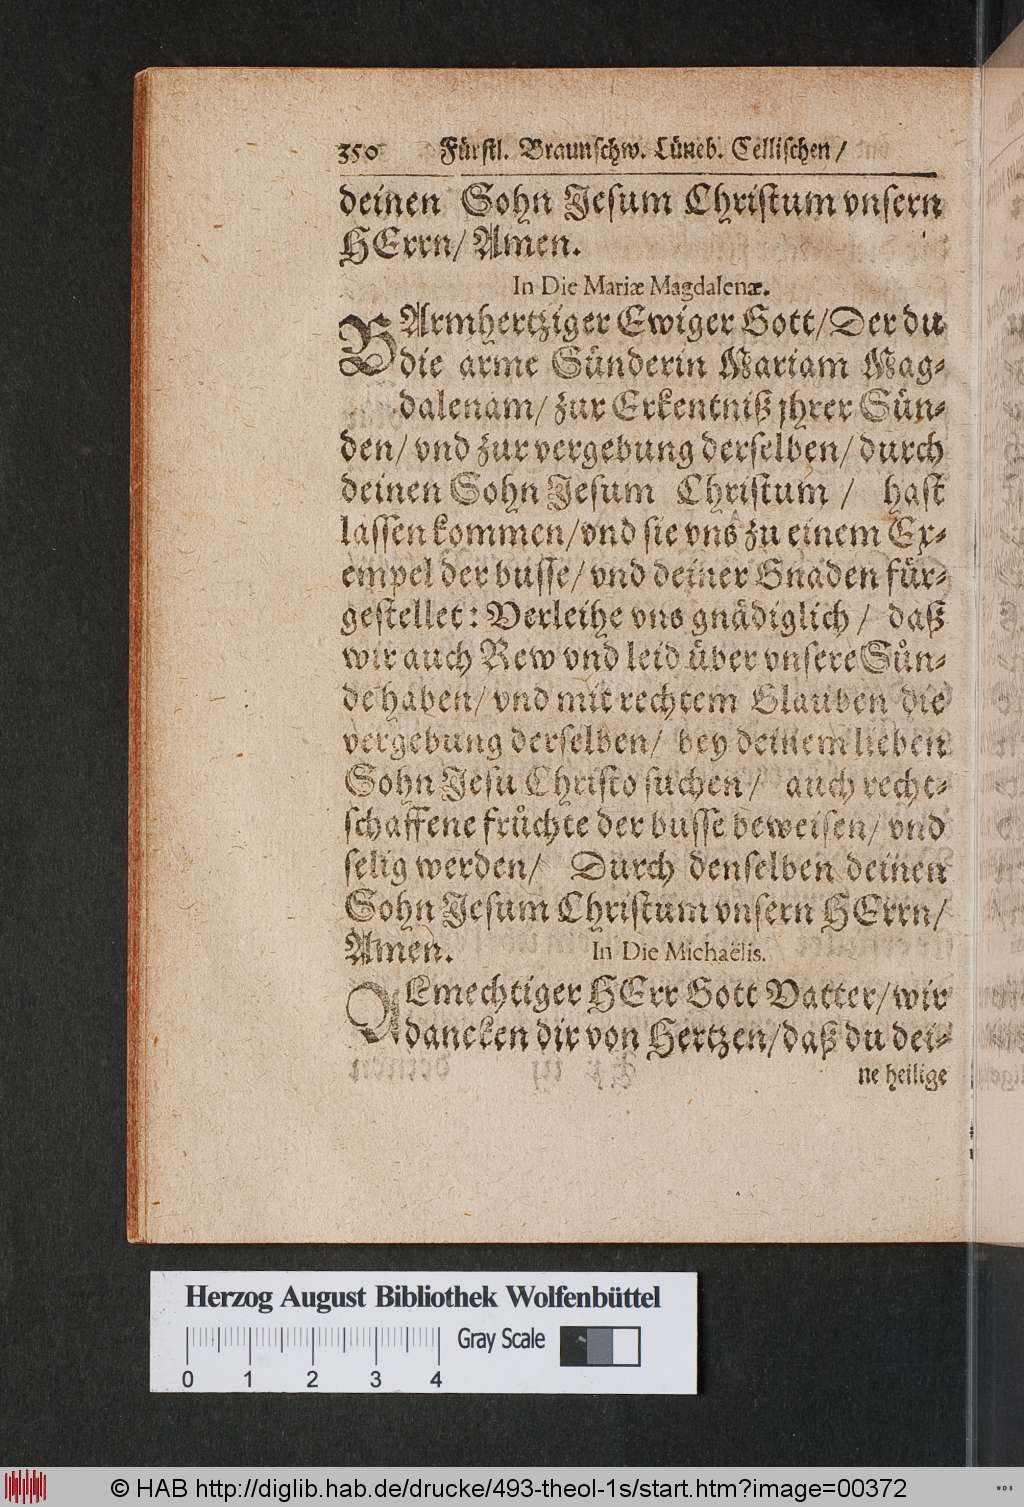 350 Fürstl. Braunschw. Lüneb. Cellischen /
deinen Sohn Jesum Christum vnsern
HErrn/ Amen.
In Die Mariæ Magdalenæ.
BArmhertziger Ewiger Gott/ Der du
die arme Sünderin Mariam Mag-
dalenam/ zur Erkentniß jhrer Sün-
den/ vnd zur vergebung derselben/ durch
deinen Sohn Jesum Christum / hast
lassen kommen/ vnd sie vns zu einem Ex-
empel der busse/ vnd deiner Gnaden für-
gestellet: Verleihe vns gnädiglich / daß
wir auch Rew vnd leid über vnsere Sün-
de haben/ vnd mit rechtem Glauben die
vergebung derselben/ bey deinem lieben
Sohn Jesu Christo suchen / auch recht-
schaffene früchte der busse beweisen/ vnd
selig werden/ Durch denselben deinen
Sohn Jesum Christum vnsern HErrn/
Amen. In Die Michaëlis.
ALmechtiger HErr Gott Vatter/ wir
dancken dir von Hertzen/ daß du dei-
ne heilige
Herzog August Bibliothek Wolfenbüttel
Gray Scale
0 1 2 3 4
© HAB http://diglib.hab.de/drucke/493-theol-1s/start.htm?image=00372